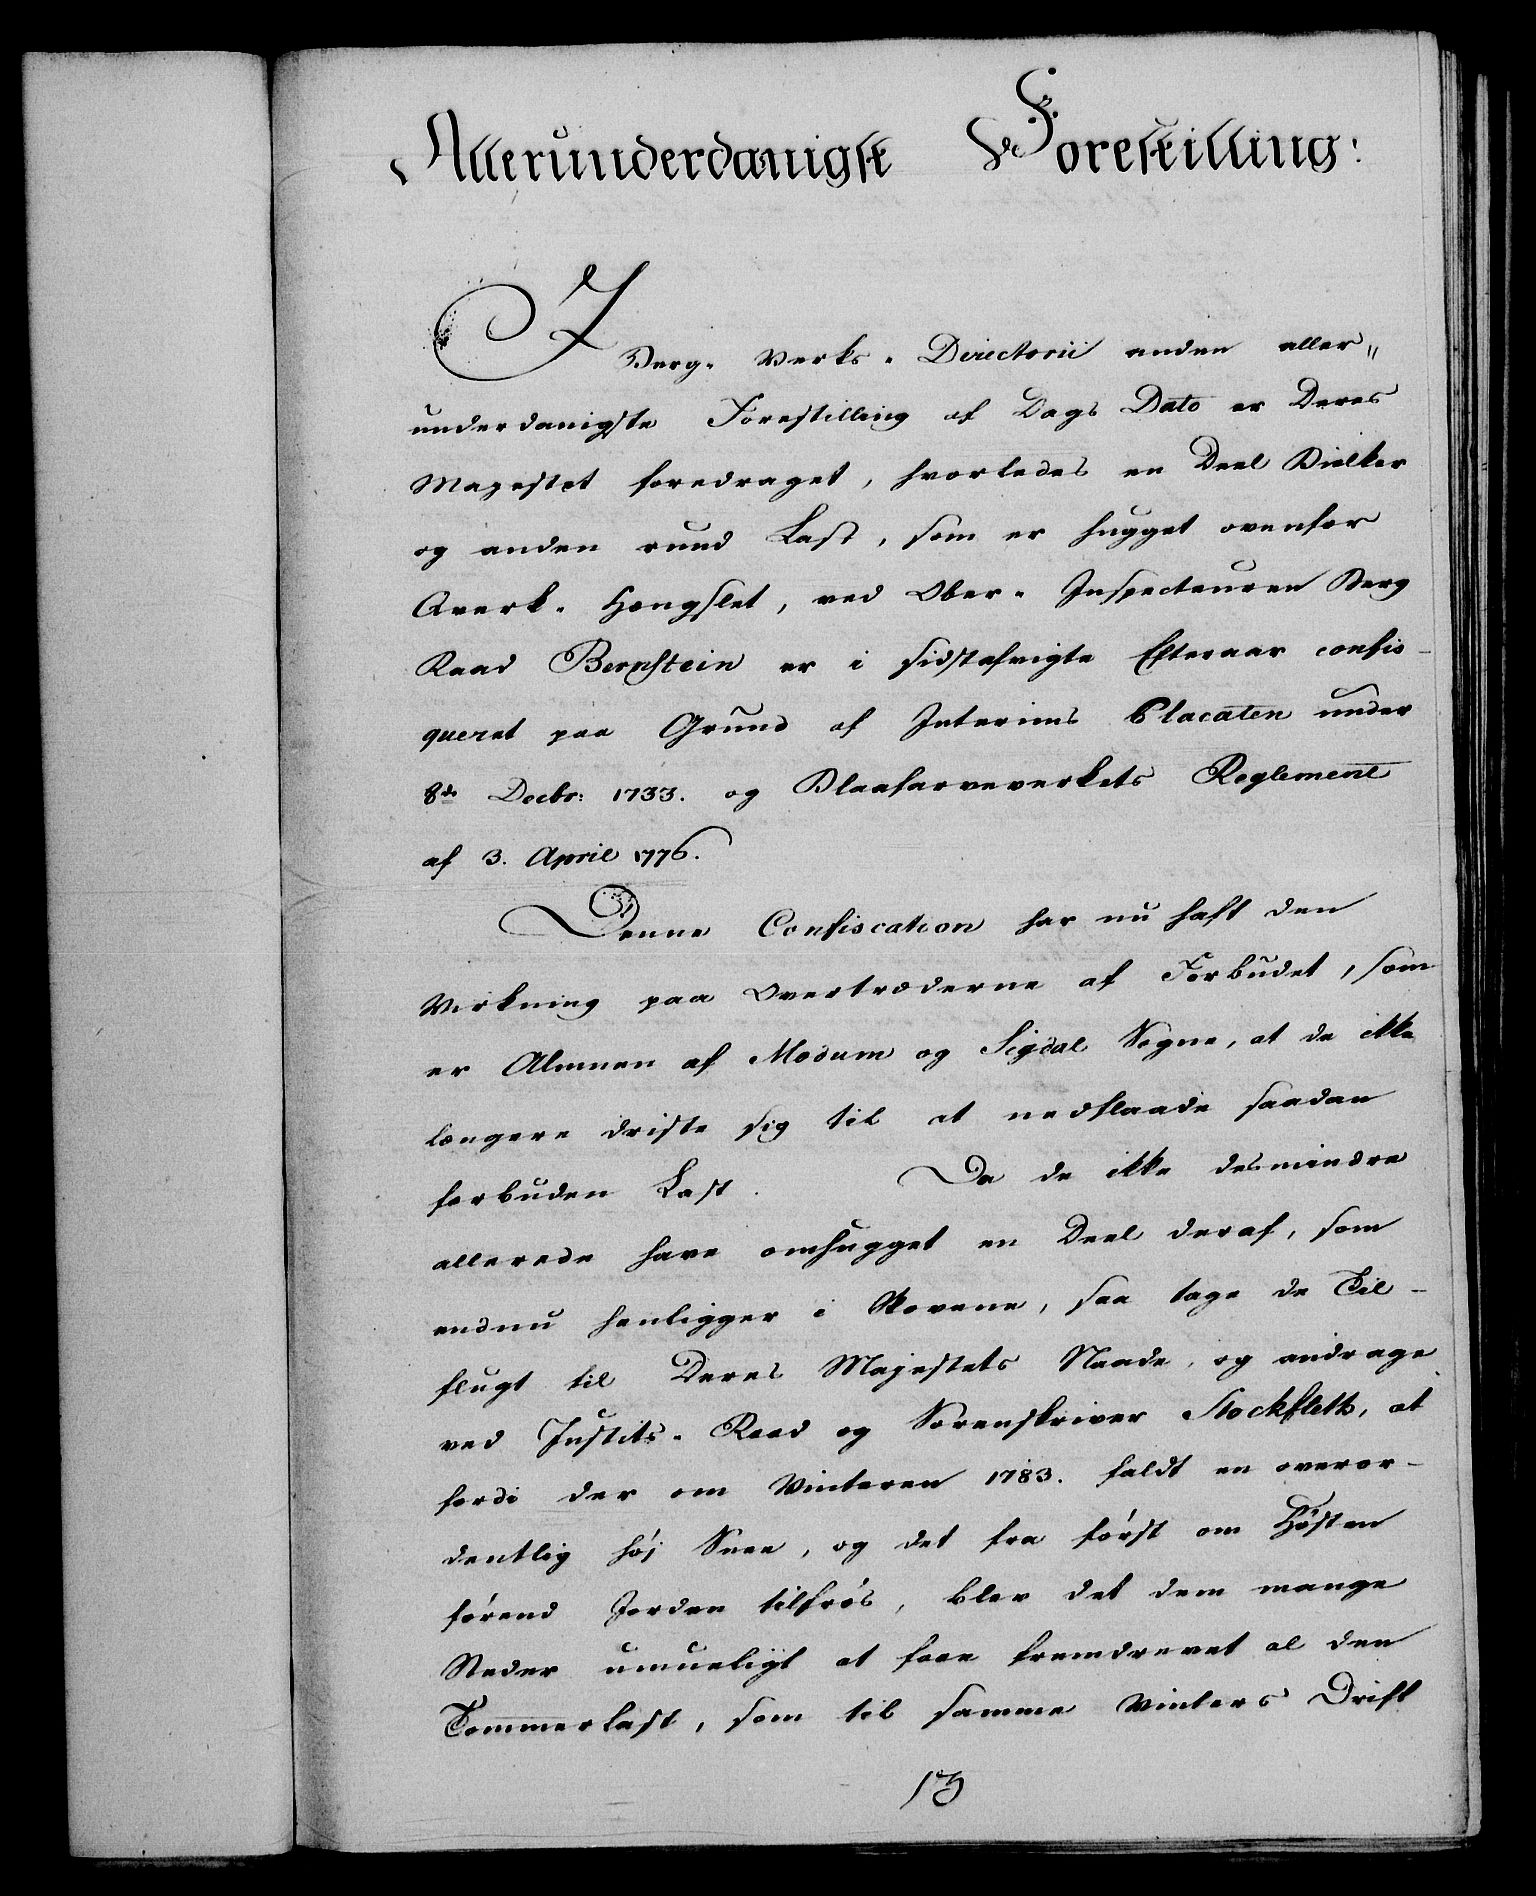 Allerunderdanigst Forestilling:
I Berg-Verks-Directorii anden aller„
underdanigste Forestilling af Dags Dato er Deres
Majestet foredraget, hvorledes en Deel Bielker
og anden rund Last, som er hugget ovenfor
Averk-Hængslet, ved Ober-Inspecteuren Berg
Raad Bernstein er i sidstafvigte Efteraar confis-
queret paa Grund af Interims Placaten under
8de Decbr: 1733. og Blaafarveverkets Reglement
af 3. April 1776.
Denne Confiscation har nu haft den
Virkning paa Overtræderne af Forbudet, som
er Almuen af Modum og Sigdal Sogne, at de ikke
længere driste sig til at nedflaade saadan
forbuden Last. Da de ikke desmindre
allerede have omhugget en Deel deraf, som
endnu henligger i Skovene, saa tage de Til-
flugt til Deres Majestets Naade, og andrage
ved Justits-Raad og Sorenskriver Stockfleth, at
fordi der om Vinteren 1783. faldt en overor-
dentlig høj Snee, og det fra først om Høsten
førend Jorden tilfrøs, blev det dem mange
Steder umueligt at faae fremdrevet al den
Tømmerlast, som til samme Vinters Drift